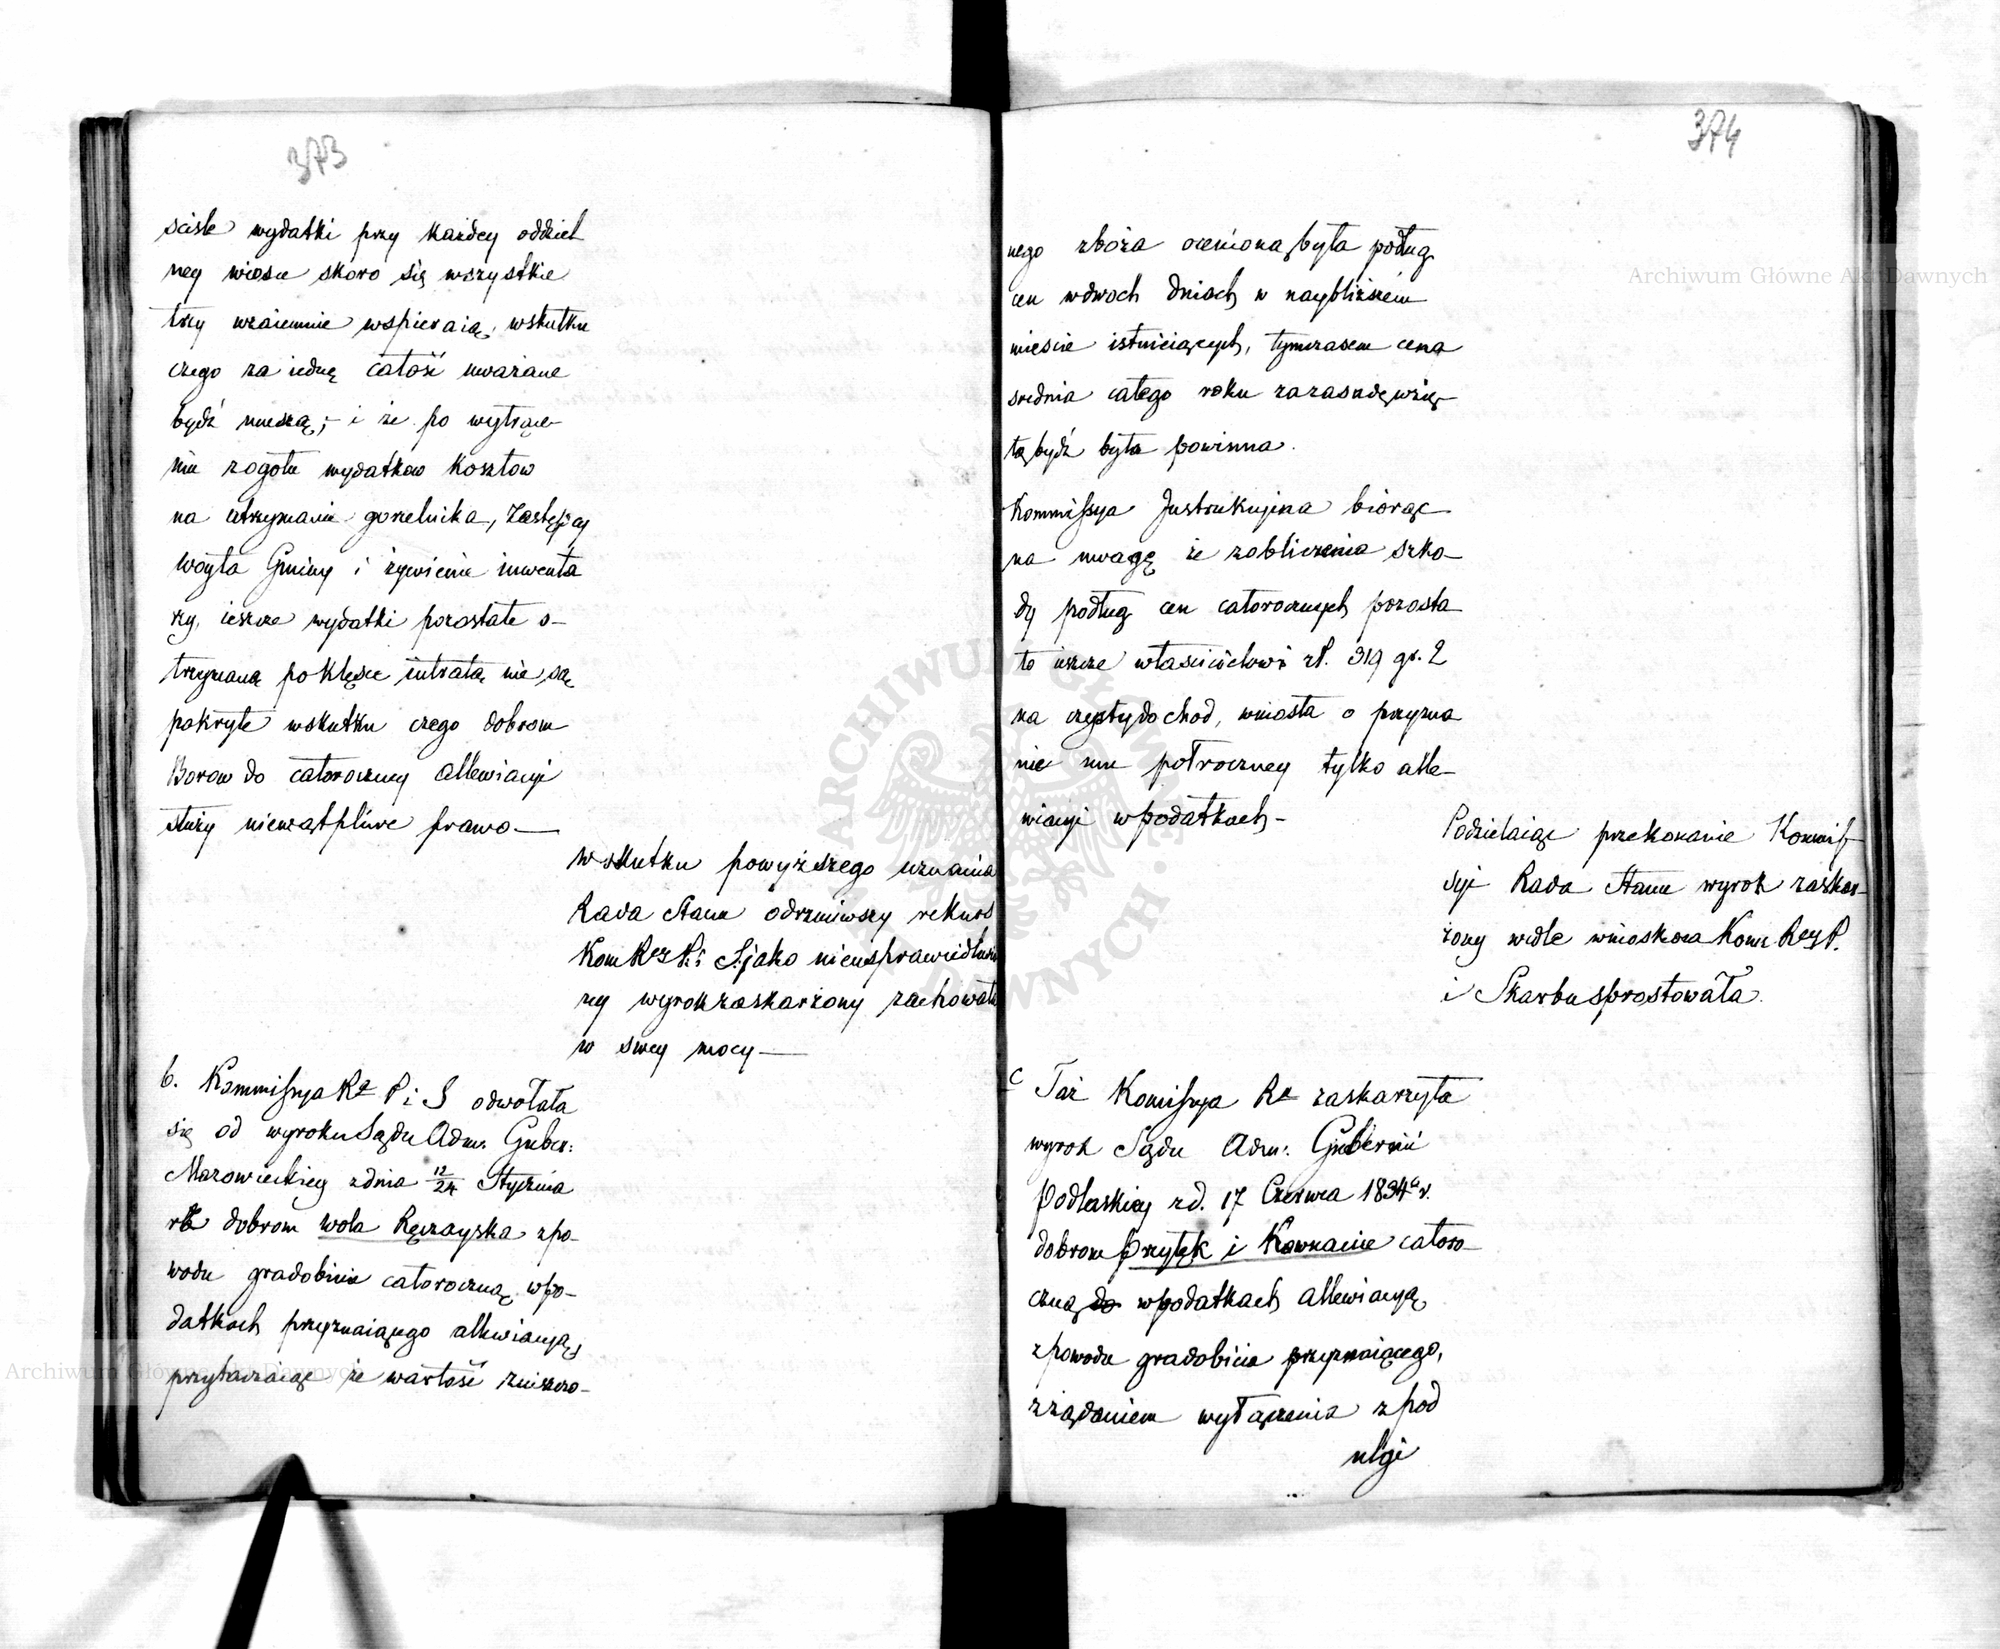 373
scisłe wydatki przy każdey oddziel
ney wiosce skoro się wszystkie
trzy wzaiemnie wspieraią, wskutku
czego za iednę całość uważane
bydź muszą, i że po wytrące-
niu zogółu wydatkow kosztow
na utrzymanie gorzelnika, Zastępcy
Woyta Gminy i żywienie inwenta
rzy, ieszcze wydatki pozostałe o-
trzymaną poklęsce intratą nie są
pokryte wskutku czego dobrom
Borow do całoroczney allewiacyi
służy niewątpliwe prawo—
wskutku powyższego uznania
Rada Stanu odrzuciwszy rekurs
Kom Rz P. i S. jako nieusprawiedliwio
ny wyrok zaskarżony zachowała
w swey mocy—
b. Kommissya Rz P i S odwołała
się od wyroku Sądu Adm. Guber:
Mazowieckiey zdnia 12/24 Stycznia
rb dobrom Wola Ręczayska zpo-
wodu gradobicia całoroczną wpo-
datkach przyznaiącego allewiacyą,
przytaczaiąc że wartość zniszczo-
374
nego zboża ocenioną była podług
cen wdwoch dniach w naybliższém
mieście istnieiących, tymczasem cena
srednia całego roku za zasadę wzię-
tą bydź była powinna.
Kommissya Instrukcyina biorąc
na uwagę że zobliczenia szko-
dy podług cen całorocznych pozosta
ło ieszcze właścicielowi zł. 319 gr. 2
na czysty dochod, wniosła o przyzna
nie mu połroczney tylko alle-
wiacyi wpodatkach-
Podzielaiąc przekonanie Kommis-
syi Rada Stanu wyrok zaskar-
żony wedle wniosków Kom: Rz P.
i Skarbu sprostowała.
c Taż Komissya Rz zaskarżyła
wyrok Sądu Adm: Gubernii
Podlaskiey zd. 17 Czerwca 1834 r.
dobrom Przyłęk i Kownacie całoro-
czną do wpodatkach allewiacyą,
zpowodu gradobicia przyznaiącego,
zżądaniem wyłączenia zpod
ulgi
Archiwum Główne Akt Dawnych
Archiwum Główne Akt Dawnych
ARCHIWUM GŁÓWNE AKT DAWNYCH